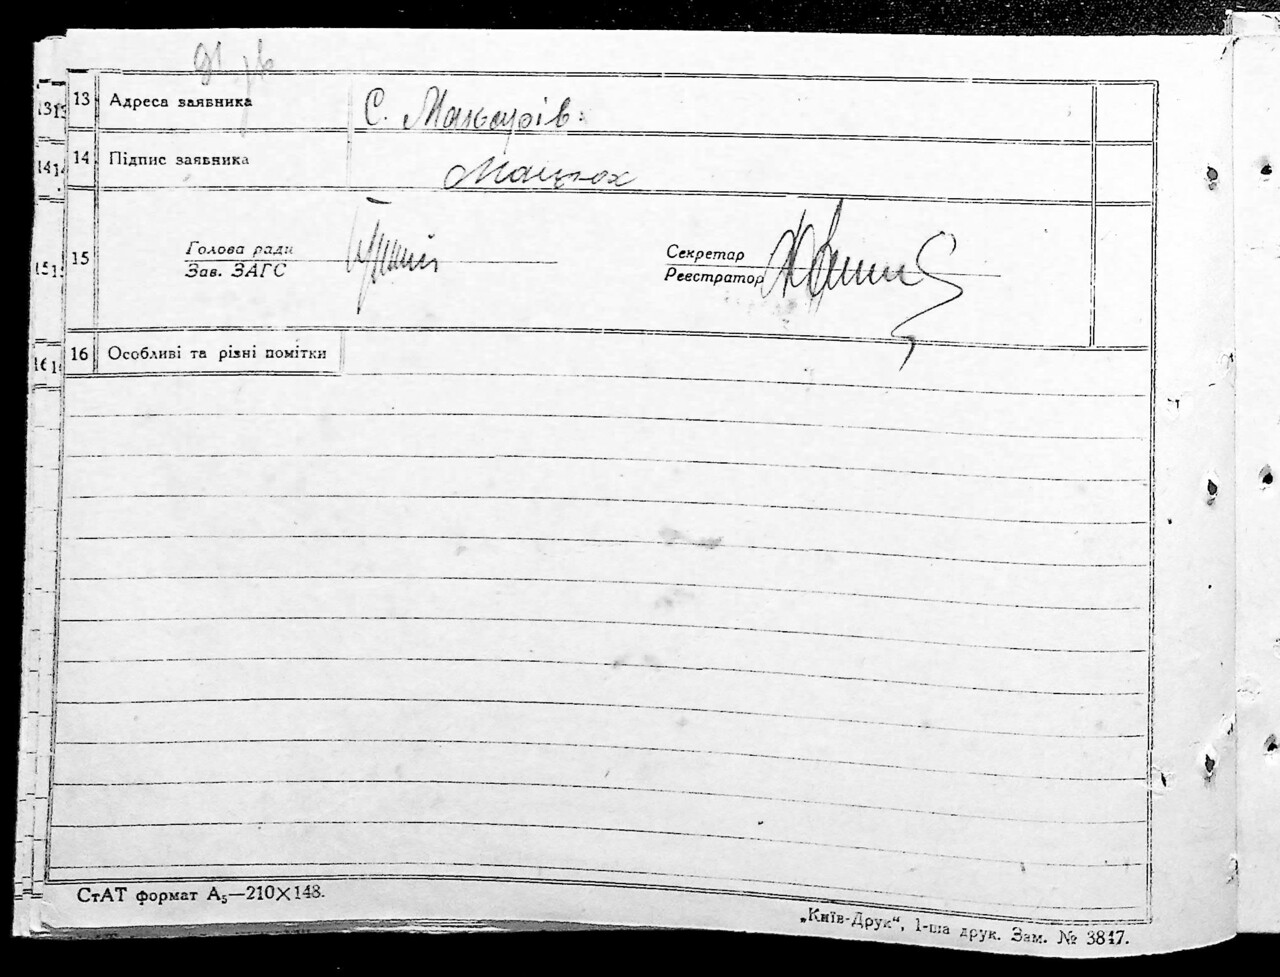 91
13 Адреса заявника С. Мансурів.
14 Підпис заявника Мацюх
15 Голова ради
Зав. ЗАГС
Секретар
Реєстратор
16 Особливі та різні помітки
СтАТ формат А₅—210×148.
„Київ-Друк“, 1-ша друк. Зам. № 3847.